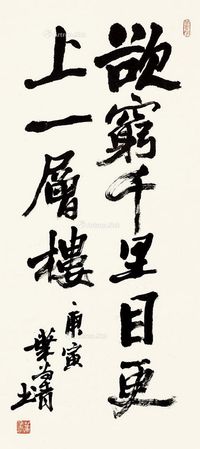 欲窮千里目更
上一層樓
庚寅
葉尚青